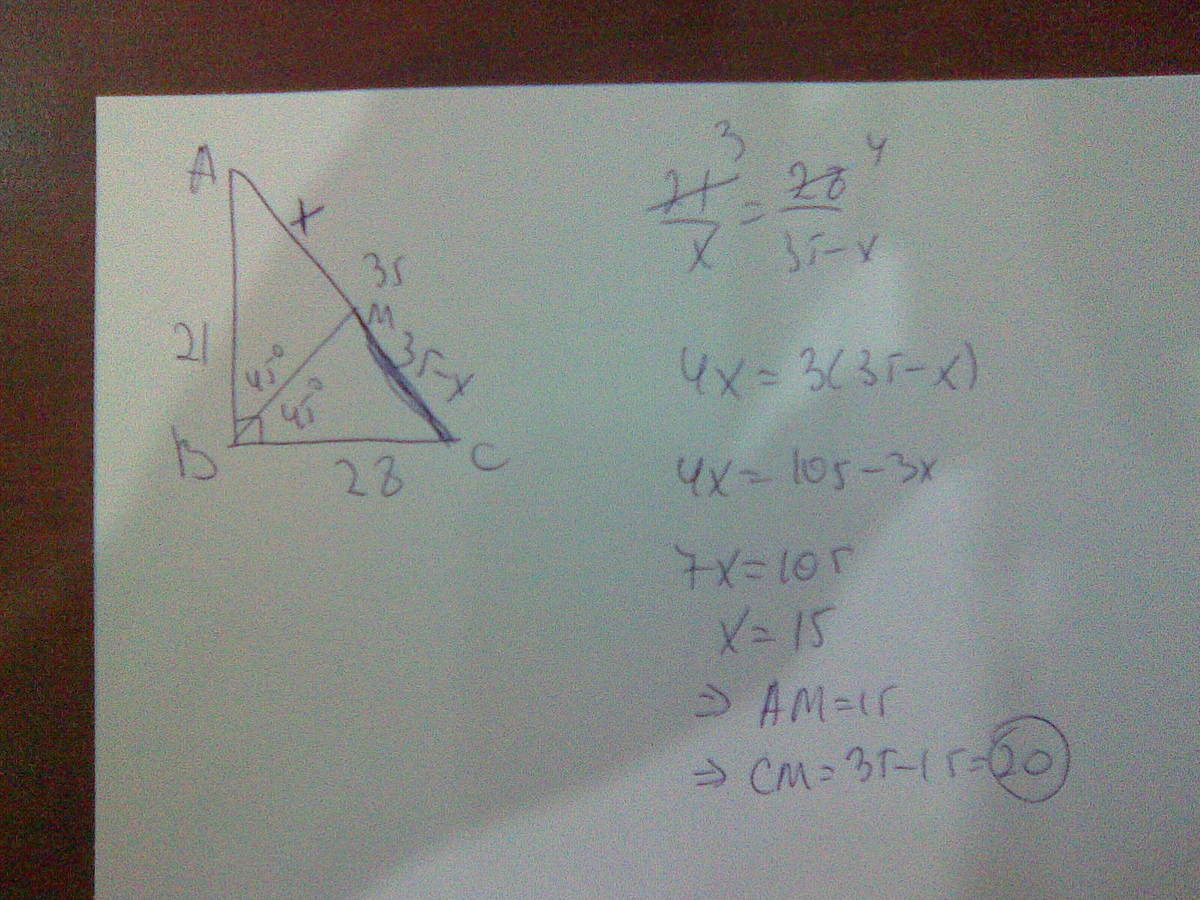 A
x
35
M
21
35-x
45°
45°
B
28
C
3 4
21/x = 28/35-x
4x = 3(35-x)
4x = 105-3x
7x = 105
x = 15
⇒ AM = 15
⇒ CM = 35-15 = 20